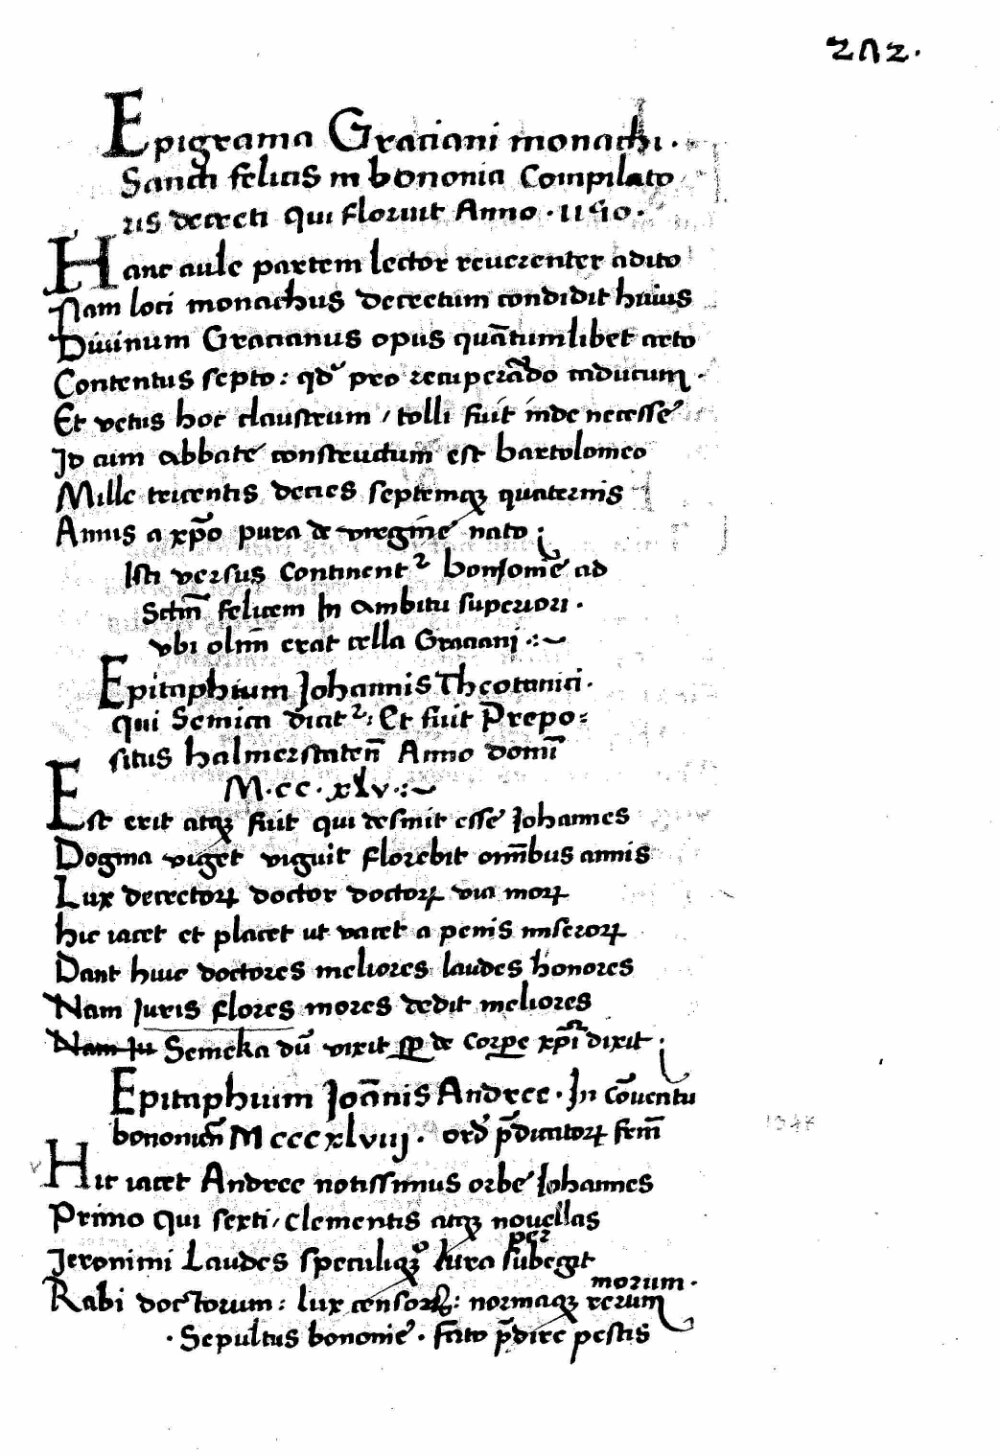 202.
Epigrama Graciani monachi.
Sancti felicis in bononia Compilato
ris decreti qui floruit Anno . 1150 .
Hanc aule partem lector reuerenter adito
Nam loci monachus decretum condidit huius
Diuinum Gracianus opus quātumlibet arto
Contentus septo: qd pro recuperādo caducum .
Et vetus hoc claustrum / tolli fuit inde necesse
Id cum abbate constructum est bartolomeo
Mille tricentis decies septemqꝫ quaternis
Annis a xp̄o pura de virgine nato ;
Isti versus Continent᷑ bononie ad
Sctm̄ felicem In ambitu superiori .
vbi olim̄ erat cella Graciani .:~
Epitaphium Johannis Theotonici .
qui Semica dicit᷑: Et fuit Prepo:
situs halmerstaten̄ Anno domī
M.cc.xlv.:~
Est erit atqꝫ fuit qui desinit esse Johannes
Dogma viget viguit florebit om̄ibus annis
Lux decretoꝝ doctor doctoꝝ via moꝝ
hic iacet et placet ut vacet a penis miseroꝝ
Dant huic doctores meliores laudes honores
Nam Juris flores mores dedit meliores
Nam Ju Semeka dū vixit sꝑ de Corpe xp̄i dixit .
Epitaphium Joānis Andree . In Cōuentu
bononien̄ Mcccxlviij . ord p̄dicatoꝝ frm̄
Hic iacet Andree notissimus orbe Johannes
Primo qui sexti / clementis atqꝫ nouellas
per
Jeronimi Laudes speculiqꝫ Iura subegit
morum .
Rabi doctorum : lux censoꝝ : normaqꝫ rerum
. Sepultus bononie . fato p̄dire pestis